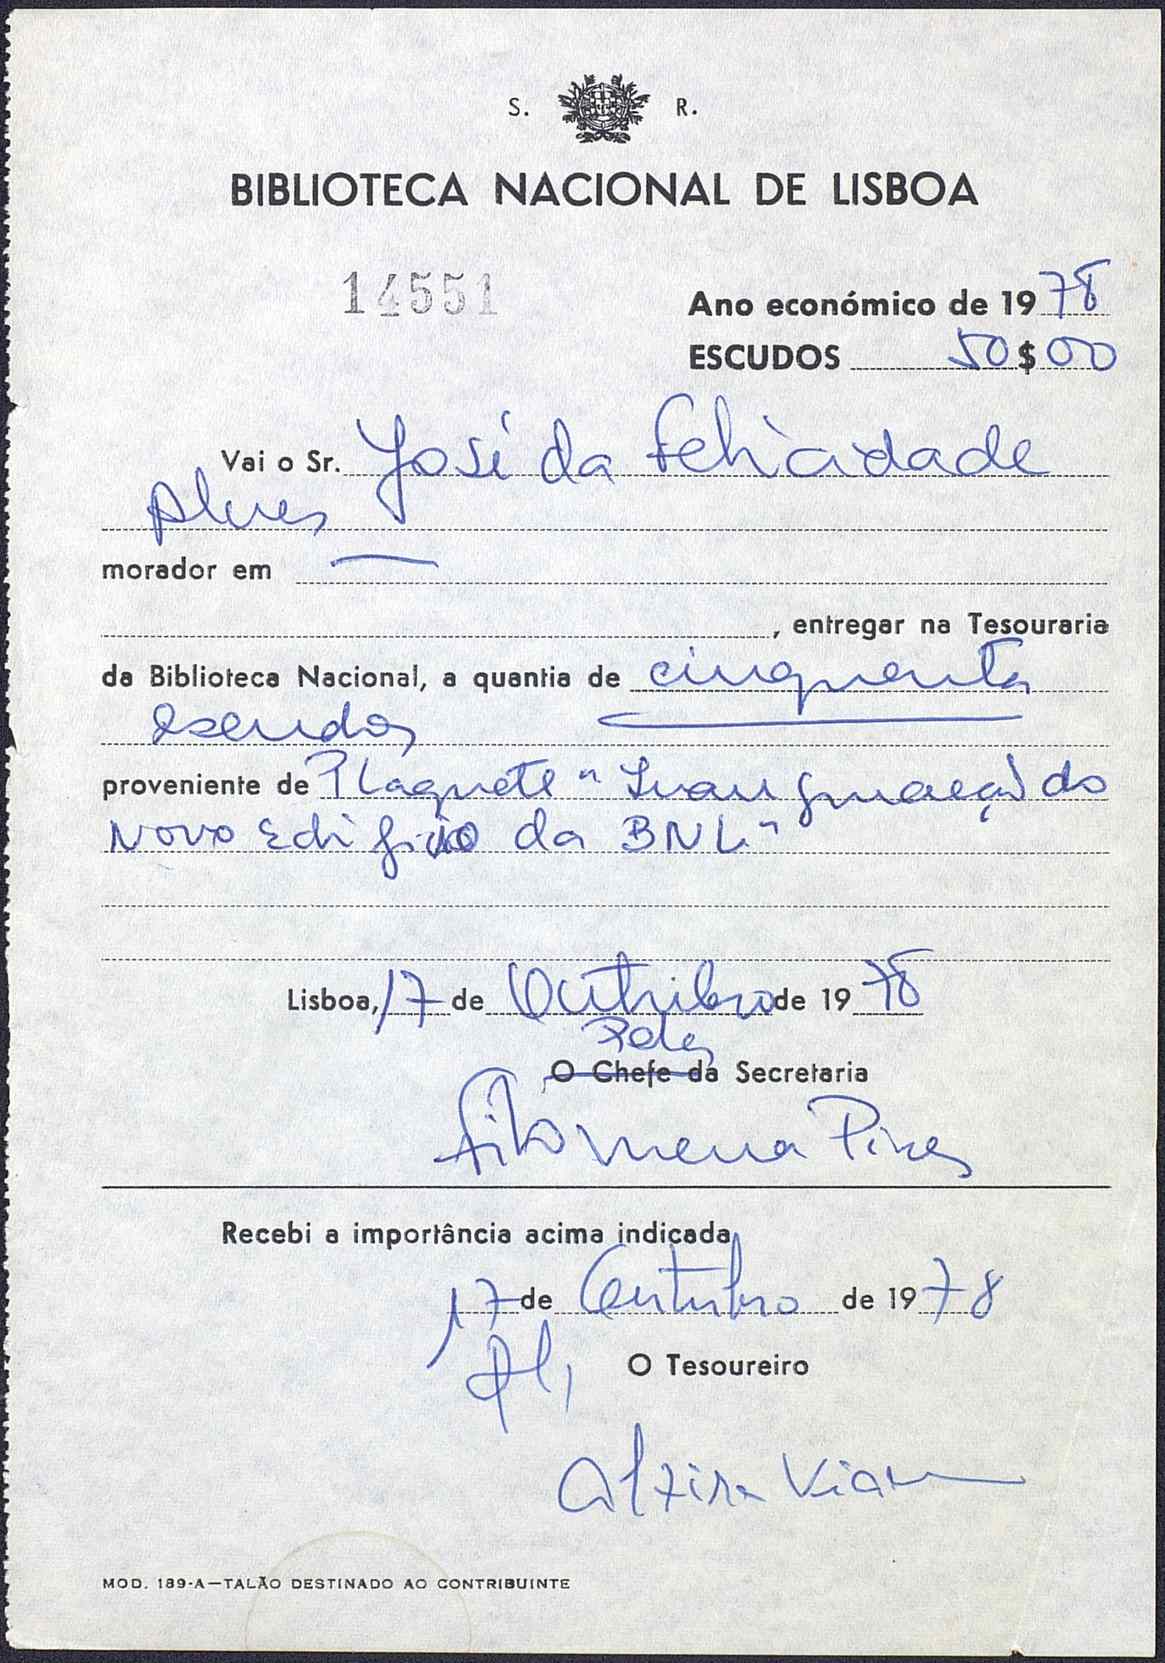 S. R.
BIBLIOTECA NACIONAL DE LISBOA
14551
Ano económico de 1978
ESCUDOS 50$00
Vai o Sr. José da Felicidade
Alves
morador em —
, entregar na Tesouraria
da Biblioteca Nacional, a quantia de cinquenta
escudos
proveniente de Plaquete "Inauguração do
Novo Edifício da BNL"
Lisboa, 17 de Outubro de 1978
Pela
O Chefe da Secretaria
Filomena Pires
Recebi a importância acima indicada,
17 de Outubro de 1978
O Tesoureiro
Alzira Viana
MOD. 189-A—TALÃO DESTINADO AO CONTRIBUINTE